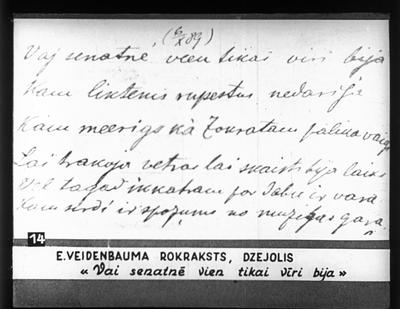 (6/X 89)
Vaj senatnē, veen tikai viri bija
Kam liktenis rupestus nedarija
Kam meerigs kà Zokratam palika vaigs
Lai trakoja vetras lai skaists bija laiks
Vēl tagad ikkatram par dabu ir vara
Kam sirdī ir spožums no muzigas gara
14
E.VEIDENBAUMA ROKRAKSTS, DZEJOLIS
« Vai senatnē vien tikai vīri bija »